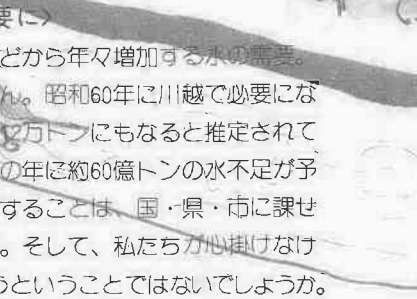 要に〉
どから年々増加する水の需要。
ん。昭和60年に川越で必要にな
12万トンにもなると推定されて
の年に約60億トンの水不足が予
することは、国・県・市に課せ
。そして、私たちが心掛けなけ
うということではないでしょうか。